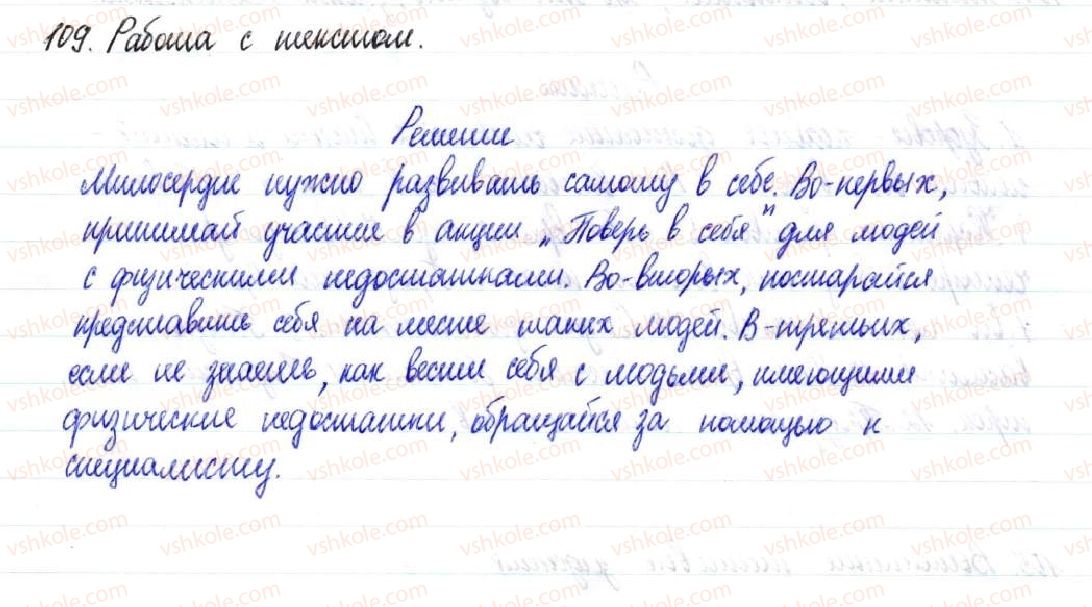 109. Работа с текстом.
Решение
Милосердие нужно развивать самому в себе. Во-первых,
принимай участие в акции „Поверь в себя" для людей
с физическими недостатками. Во-вторых, постарайся
представить себя на месте таких людей. В-третьих,
если не знаешь, как вести себя с людьми, имеющими
физические недостатки, обращайся за помощью к
специалисту.
vshkole.com